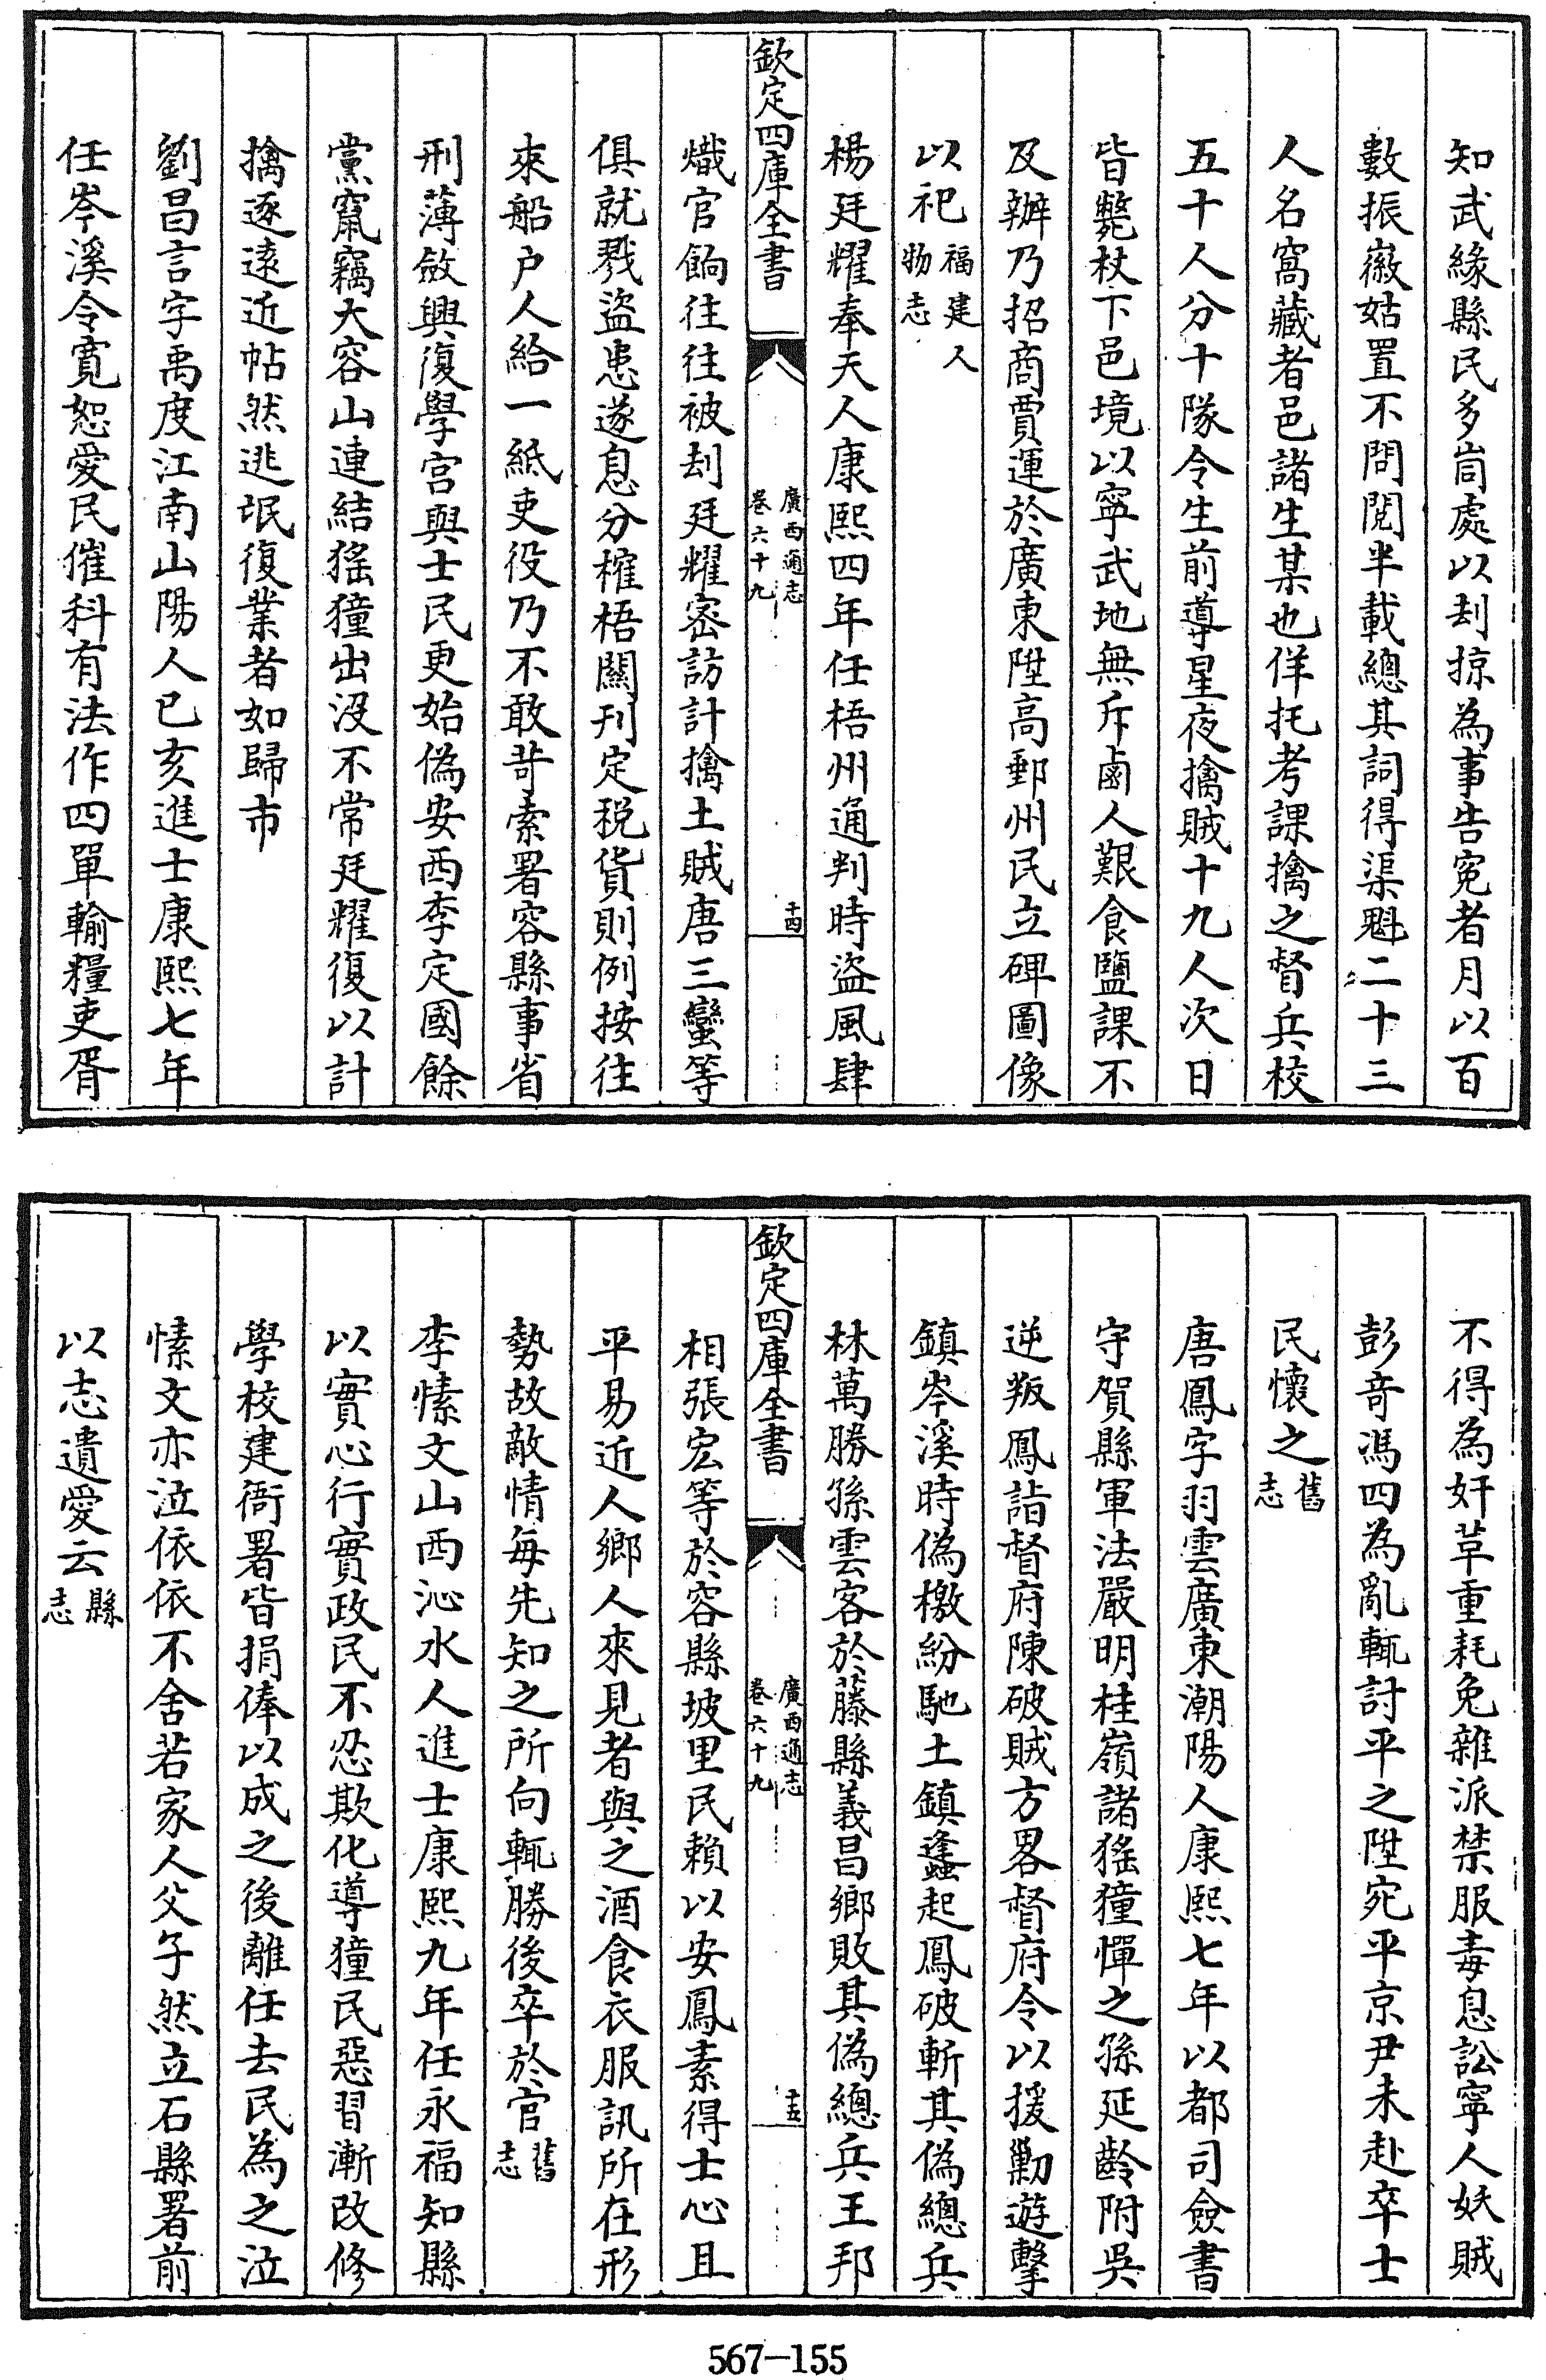 知武緣縣民多峝處以刦掠為事告寃者月以百
數振嶶姑置不問閱半載總其詞得渠魁二十三
人名窩藏者邑諸生某也佯托考課擒之督兵校
五十人分十隊令生前導星夜擒賊十九人次日
皆斃杖下邑境以寧武地無斥鹵人艱食鹽課不
及辦乃招商賈運於廣東陞高郵州民立碑圖像
以祀福建人物志
楊廷耀奉天人康熙四年任梧州通判時盜風肆
欽定四庫全書
廣西通志
卷六十九
十四
熾官餉往往被刦廷耀密訪計擒土賊唐三蠻等
俱就戮盜患遂息分榷梧關刋定税貨則例按往
來船户人給一紙吏役乃不敢苛索署容縣事省
刑薄斂興復學宫與士民更始偽安西李定國餘
黨竄竊大容山連結猺獞出沒不常廷耀復以計
擒逐遠近帖然逃氓復業者如歸市
劉昌言字禹度江南山陽人已亥進士康熙七年
任岑溪令寛恕愛民催科有法作四單輸糧吏胥
不得為奸革重耗免雜派禁服毒息訟寧人妖賊
彭奇馮四為亂輒討平之陞宛平京尹未赴卒士
民懷之舊志
唐鳳字羽雲廣東潮陽人康熙七年以都司僉書
守賀縣軍法嚴明桂嶺諸猺獞憚之孫延齡附吳
逆叛鳳詣督府陳破賊方畧督府令以援勦遊擊
鎮岑溪時偽檄紛馳土鎮蠭起鳳破斬其偽總兵
林萬勝孫雲客於藤縣義昌鄉敗其偽總兵王邦
欽定四庫全書
廣西通志
卷六十九
十五
相張宏等於容縣坡里民賴以安鳳素得士心且
平易近人鄉人來見者與之酒食衣服訊所在形
勢故敵情每先知之所向輒勝後卒於官舊志
李愫文山西沁水人進士康熙九年任永福知縣
以實心行實政民不忍欺化導獞民惡習漸改修
學校建衙署皆捐俸以成之後離任去民為之泣
愫文亦泣依依不舍若家人父子然立石縣署前
以志遺愛云縣志
567—155